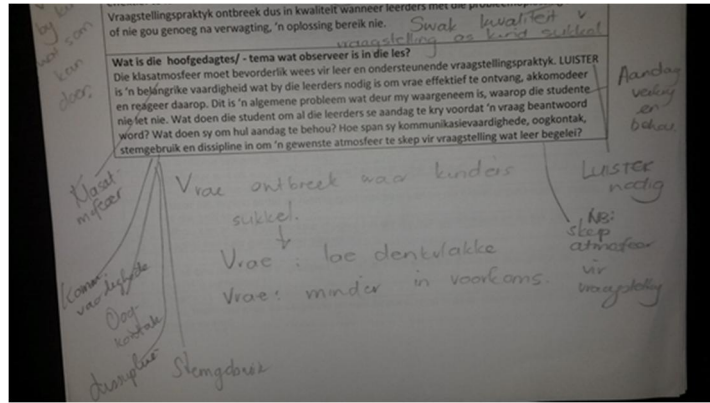 by
kan
door.
Vraagstellingspraktyk ontbreek dus in kwaliteit wanneer leerders met die
of nie gou genoeg na verwagting, 'n oplossing bereik nie.
Swak kwaliteit v
vraagstelling as kind sukkel
Wat is die hoofgedagtes/ - tema wat observeer is in die les?
Die klasatmosfeer moet bevorderlik wees vir leer en ondersteunende vraagstellingspraktyk. LUISTER
is 'n belangrike vaardigheid wat by die leerders nodig is om vrae effektief te ontvang, akkomodeer
en reageer daarop. Dit is 'n algemene probleem wat deur my waargeneem is, waarop die studente
nie let nie. Wat doen die student om al die leerders se aandag te kry voordat 'n vraag beantwoord
word? Wat doen sy om hul aandag te behou? Hoe span sy kommunikasievaardighede, oogkontak,
stemgebruik en dissipline in om 'n gewenste atmosfeer te skep vir vraagstelling wat leer begelei?
Aandag
verkry
en
behou.
LUISTER
nodig
NB:
skep
atmosfeer
vir
vraagstelling
Vrae ontbreek waar kinders
sukkel.
Vrae : lae denkvlakke
Vrae : minder in voorkoms.
Klasat-
mosfeer
Komm
vaardighede
Oog-
kontak
dissipline
Stemgebruik